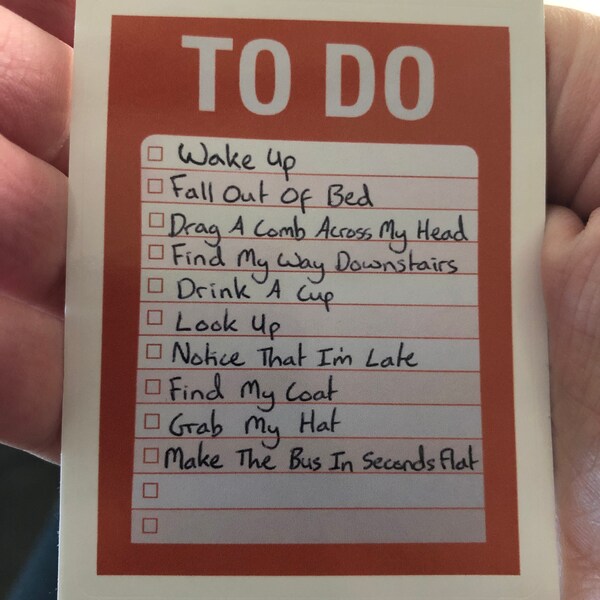 TO DO
Wake Up
Fall Out Of Bed
Drag A Comb Across My Head
Find My Way Downstairs
Drink A Cup
Look Up
Notice That I'm Late
Find My Coat
Grab My Hat
Make The Bus In Seconds Flat